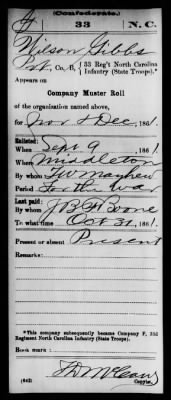 (Confederate.)
G 33 N. C.
Wilson Gibbs
Pvt, Co. B, 33 Reg't North Carolina Infantry (State Troops).*
Appears on
Company Muster Roll
of the organization named above,
for Nov & Dec, 1861.
Enlisted:
When Sept 9, 1861.
Where Middleton
By whom T W Mayhew
Period For the War
Last paid:
By whom J B F Boone
To what time Oct 31, 1861.
Present or absent Present
Remarks:
*This company subsequently became Company F, 33d
Regiment North Carolina Infantry (State Troops).
Book mark:
(642)
Copyist.